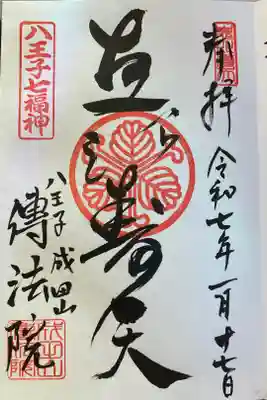 奉拝
令和七年一月十七日
恵比壽天
八王子七福神
八王子成田山
傳法院